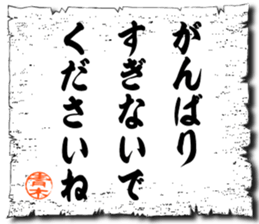 がんばり
すぎないで
くださいね
青木